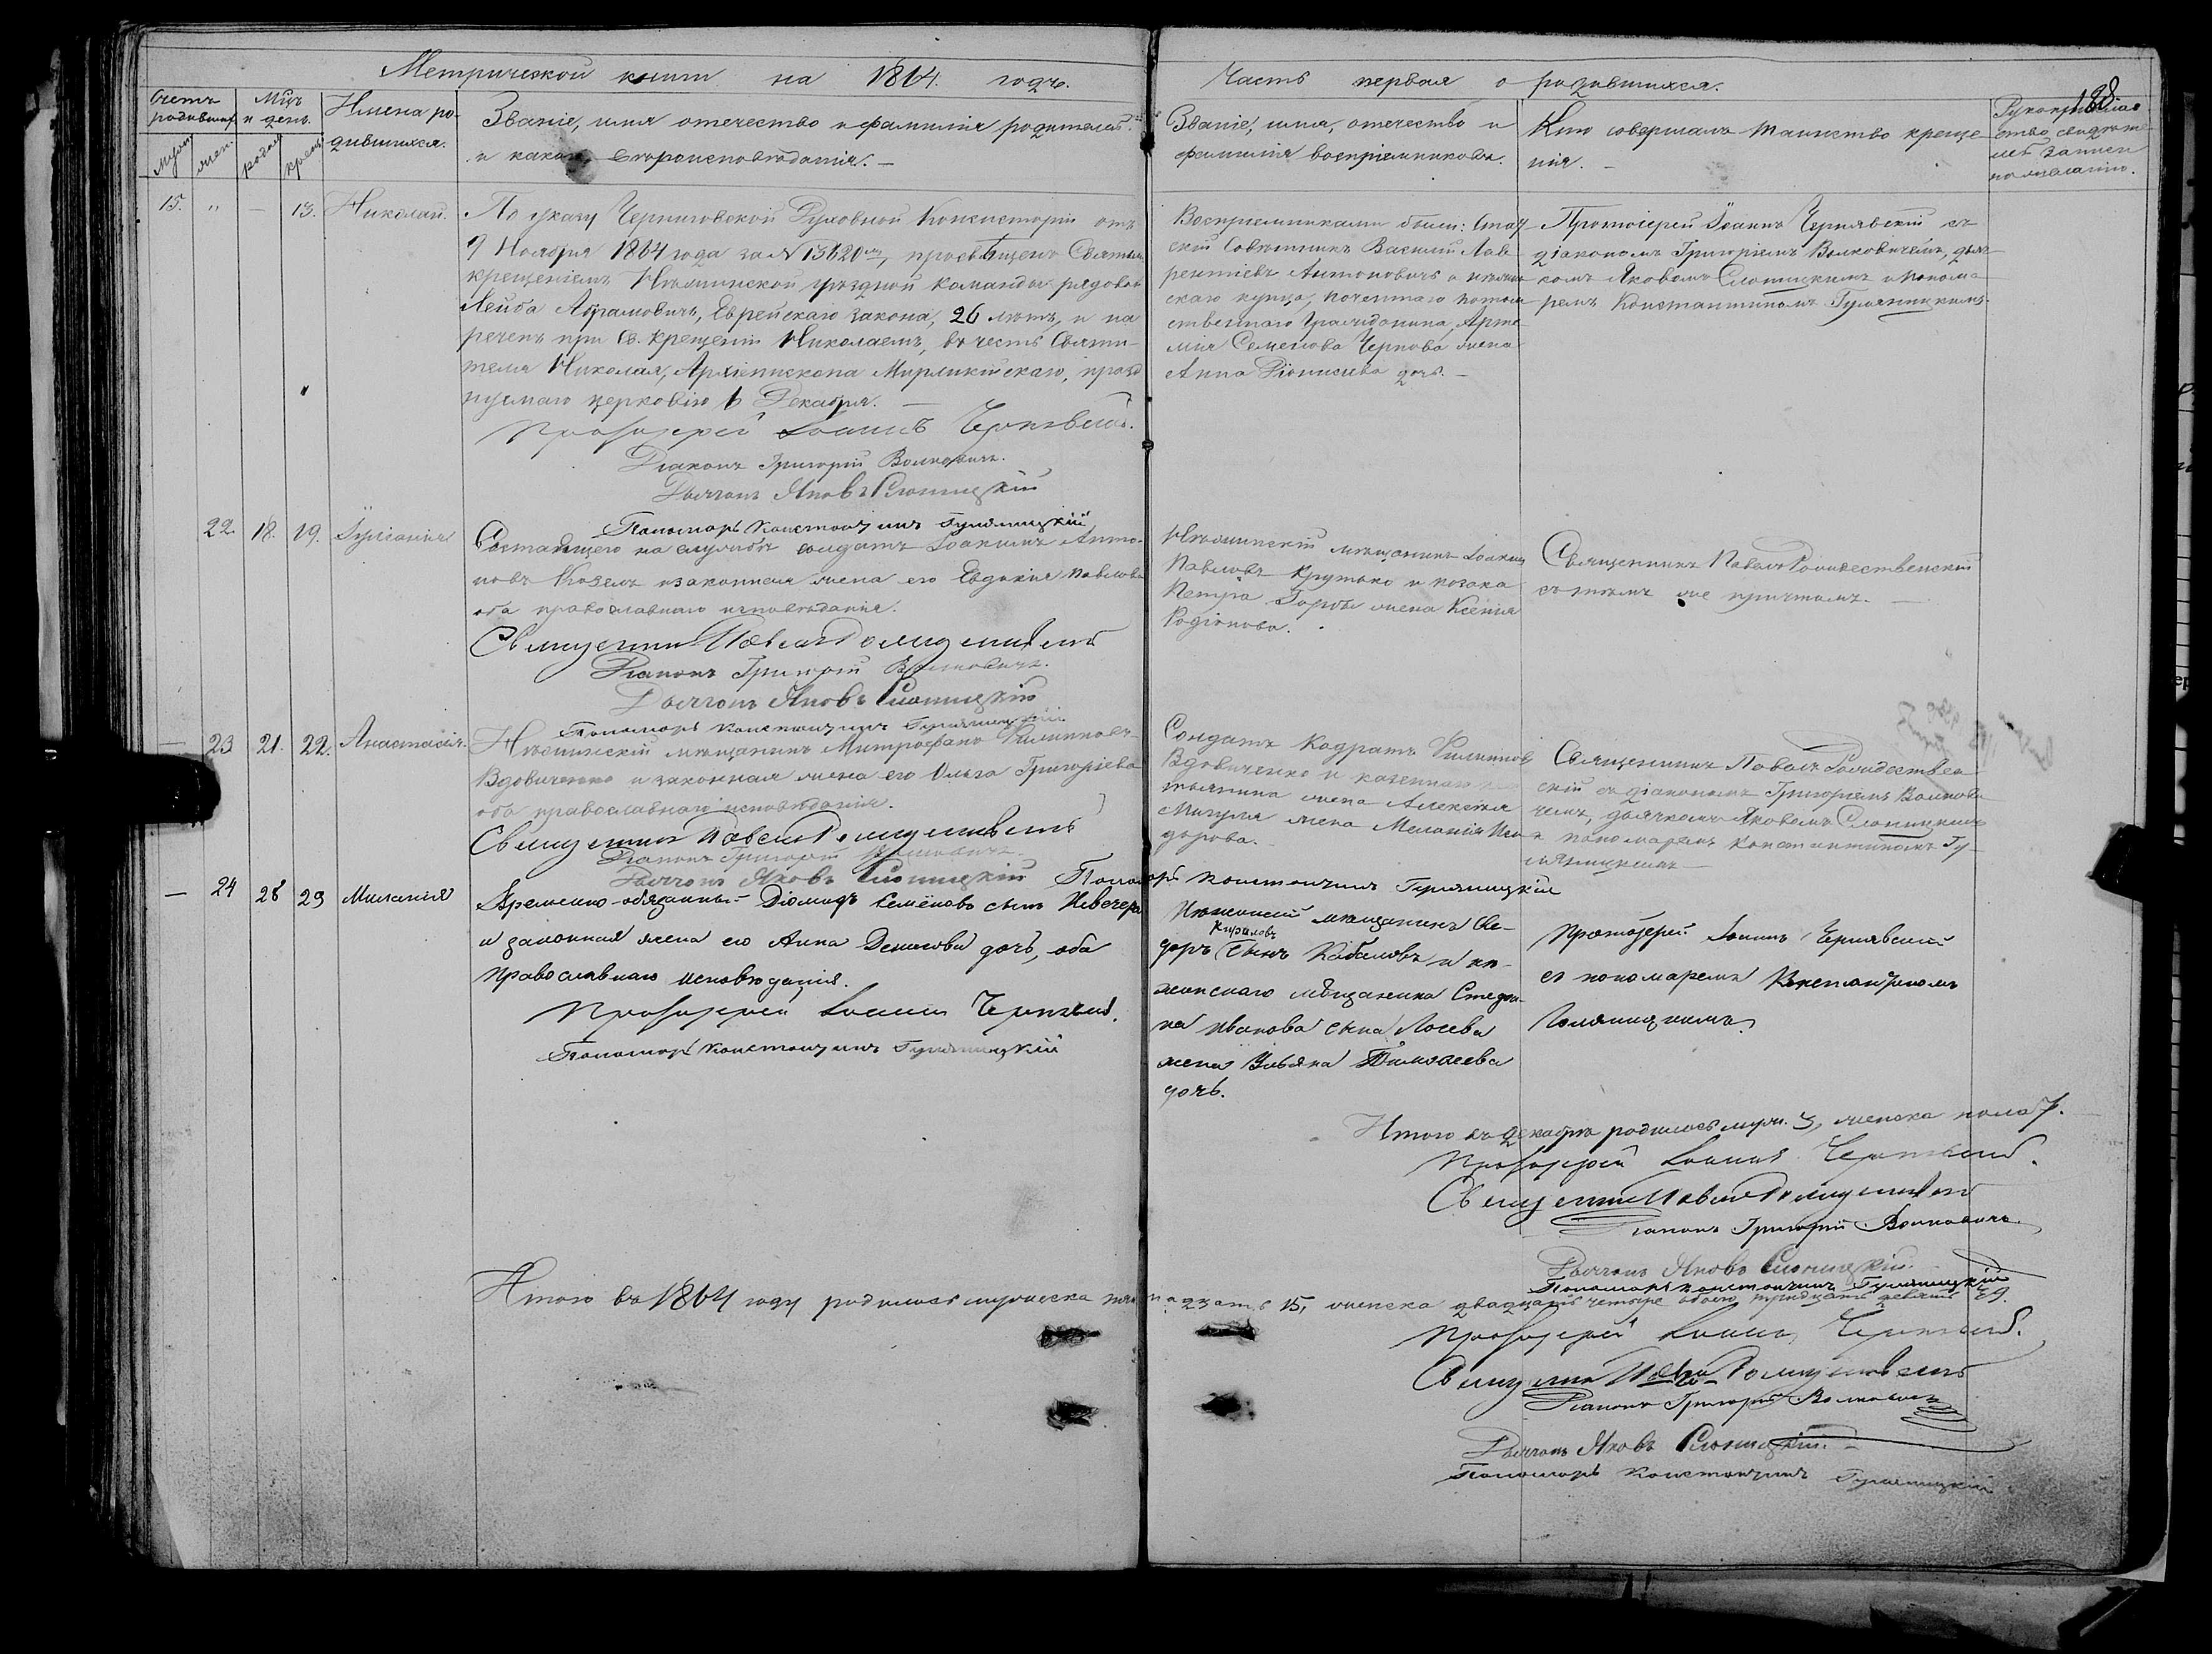 Метрической книги на 1864. годъ.
Часть первая о родившихся.
188
Счетъ родивших.
Муж. жен.
Мцъ и день.
рожд. крещ.
Имена родившихся.
Званіе, имя отечество и фамилія родителей
и какого вѣроисповѣданія. —
Званіе, имя, отечество и
фамилія воспріемниковъ.
Кто совершалъ таинство креще
нія. —
Рукоприклад
ство свидѣте
лей записи
по желанію.
15. " — 13. Николай.
По указу Черниговской Духовной Консисторіи отъ
9 Ноября 1864 года за № 13620, просвѣщенъ Святымъ
крещеніемъ Нѣжинской уѣздной команды рядовой
Лейба Абрамовичъ, Еврейскаго закона, 26 лѣтъ, и на
реченъ при Св. крещеніи Николаемъ, въ честь Святи-
теля Николая, Архіепископа Мирликійскаго, празд
нуемаго церковію 6 Декабря. —
Протоіерей Іоаннъ Чернявскій.
Діаконъ Григорій Волковичъ.
Дьячокъ Яковъ Слоницкій
Пономарь Константинъ Гуляницкій
Воспріемниками были: Стат
скій Совѣтникъ Василій Лав
рентіевъ Антоновичъ и нѣжин
скаго купца, почетнаго потом
ственнаго Гражданина, Арте
мія Семенова Чернова жена
Анна Діонисіева дочь. —
Протоіерей Іоаннъ Чернявскій съ
діакономъ Григоріемъ Волковичемъ, дьяч
комъ Яковомъ Слоницкимъ и понома
ремъ Константиномъ Гуляницкимъ.
22. 18. 19. Іуліанія
Состоящего на службѣ солдатъ Іоакимъ Анто-
новъ Козелъ и законная жена его Евдокія Павлова
оба православнаго исповѣданія.
Священникъ Павелъ Рождественскій
Діаконъ Григорій Волковичъ.
Дьячокъ Яковъ Слоницкій
Пономарь Константинъ Гуляницкій
Нѣжинскій мѣщанинъ Іоакимъ
Павловъ Крутько и козака
Петра жена Ксенія
Родіонова.
Священникъ Павелъ Рождественскій
съ тѣмъ же причтомъ. —
— 23 21. 22. Анастасія.
Нѣжинскій мѣщанинъ Митрофанъ Филипповъ
Вдовиченко и законная жена его Ольга Григоріева
оба православнаго исповѣданія.
Священникъ Павелъ Рождественскій
Діаконъ Григорій Волковичъ.
Дьячокъ Яковъ Слоницкій Пономарь Константинъ Гуляницкій
Солдатъ Кодратъ Филипповъ
Вдовиченко и казеннаго
жена Алексѣя
жена Меланія Иси
дорова.
Священникъ Павелъ Рождествен
скій съ діакономъ Григоріемъ Волкови
чемъ, дьячкомъ Яковомъ Слоницкимъ
и пономаремъ Константиномъ Гу-
ляницкимъ —
— 24 28 29 Миланія
Временно-обязанный Діомидъ Семёновъ сынъ Невечеря
и законная жена его Анна Денисова дочь, оба
Православнаго исповѣданія.
Протоіерей Іоаннъ Чернявскій.
Пономарь Константинъ Гуляницкій
Нѣжинскій мѣщанинъ Ѳе-
Кириловъ
доръ сынъ Кобаловъ и нѣ-
жинскаго мѣщанина
на Иванова сына Лосева
жена Ульяна Тимоѳеева
дочь.
Протоіерей Іоаннъ Чернявскій
съ пономаремъ Константиномъ
Гуляницкимъ.
Итого въ декабрѣ родилось муж. 3, женска пола 7.
Протоіерей Іоаннъ Чернявскій.
Священникъ Павелъ Рождественскій
Діаконъ Григорій Волковичъ.
Дьячокъ Яковъ Слоницкій.
Пономарь Константинъ Гуляницкій
Итого въ 1864 году родилось мужеска пятнадцать 15, женска двадцать четыре обоего тридцать девять 39.
Протоіерей Іоаннъ Чернявскій.
Священникъ Павелъ Рождественскій
Діаконъ Григорій Волковичъ
Дьячокъ Яковъ Слоницкій. —
Пономарь Константинъ Гуляницкій